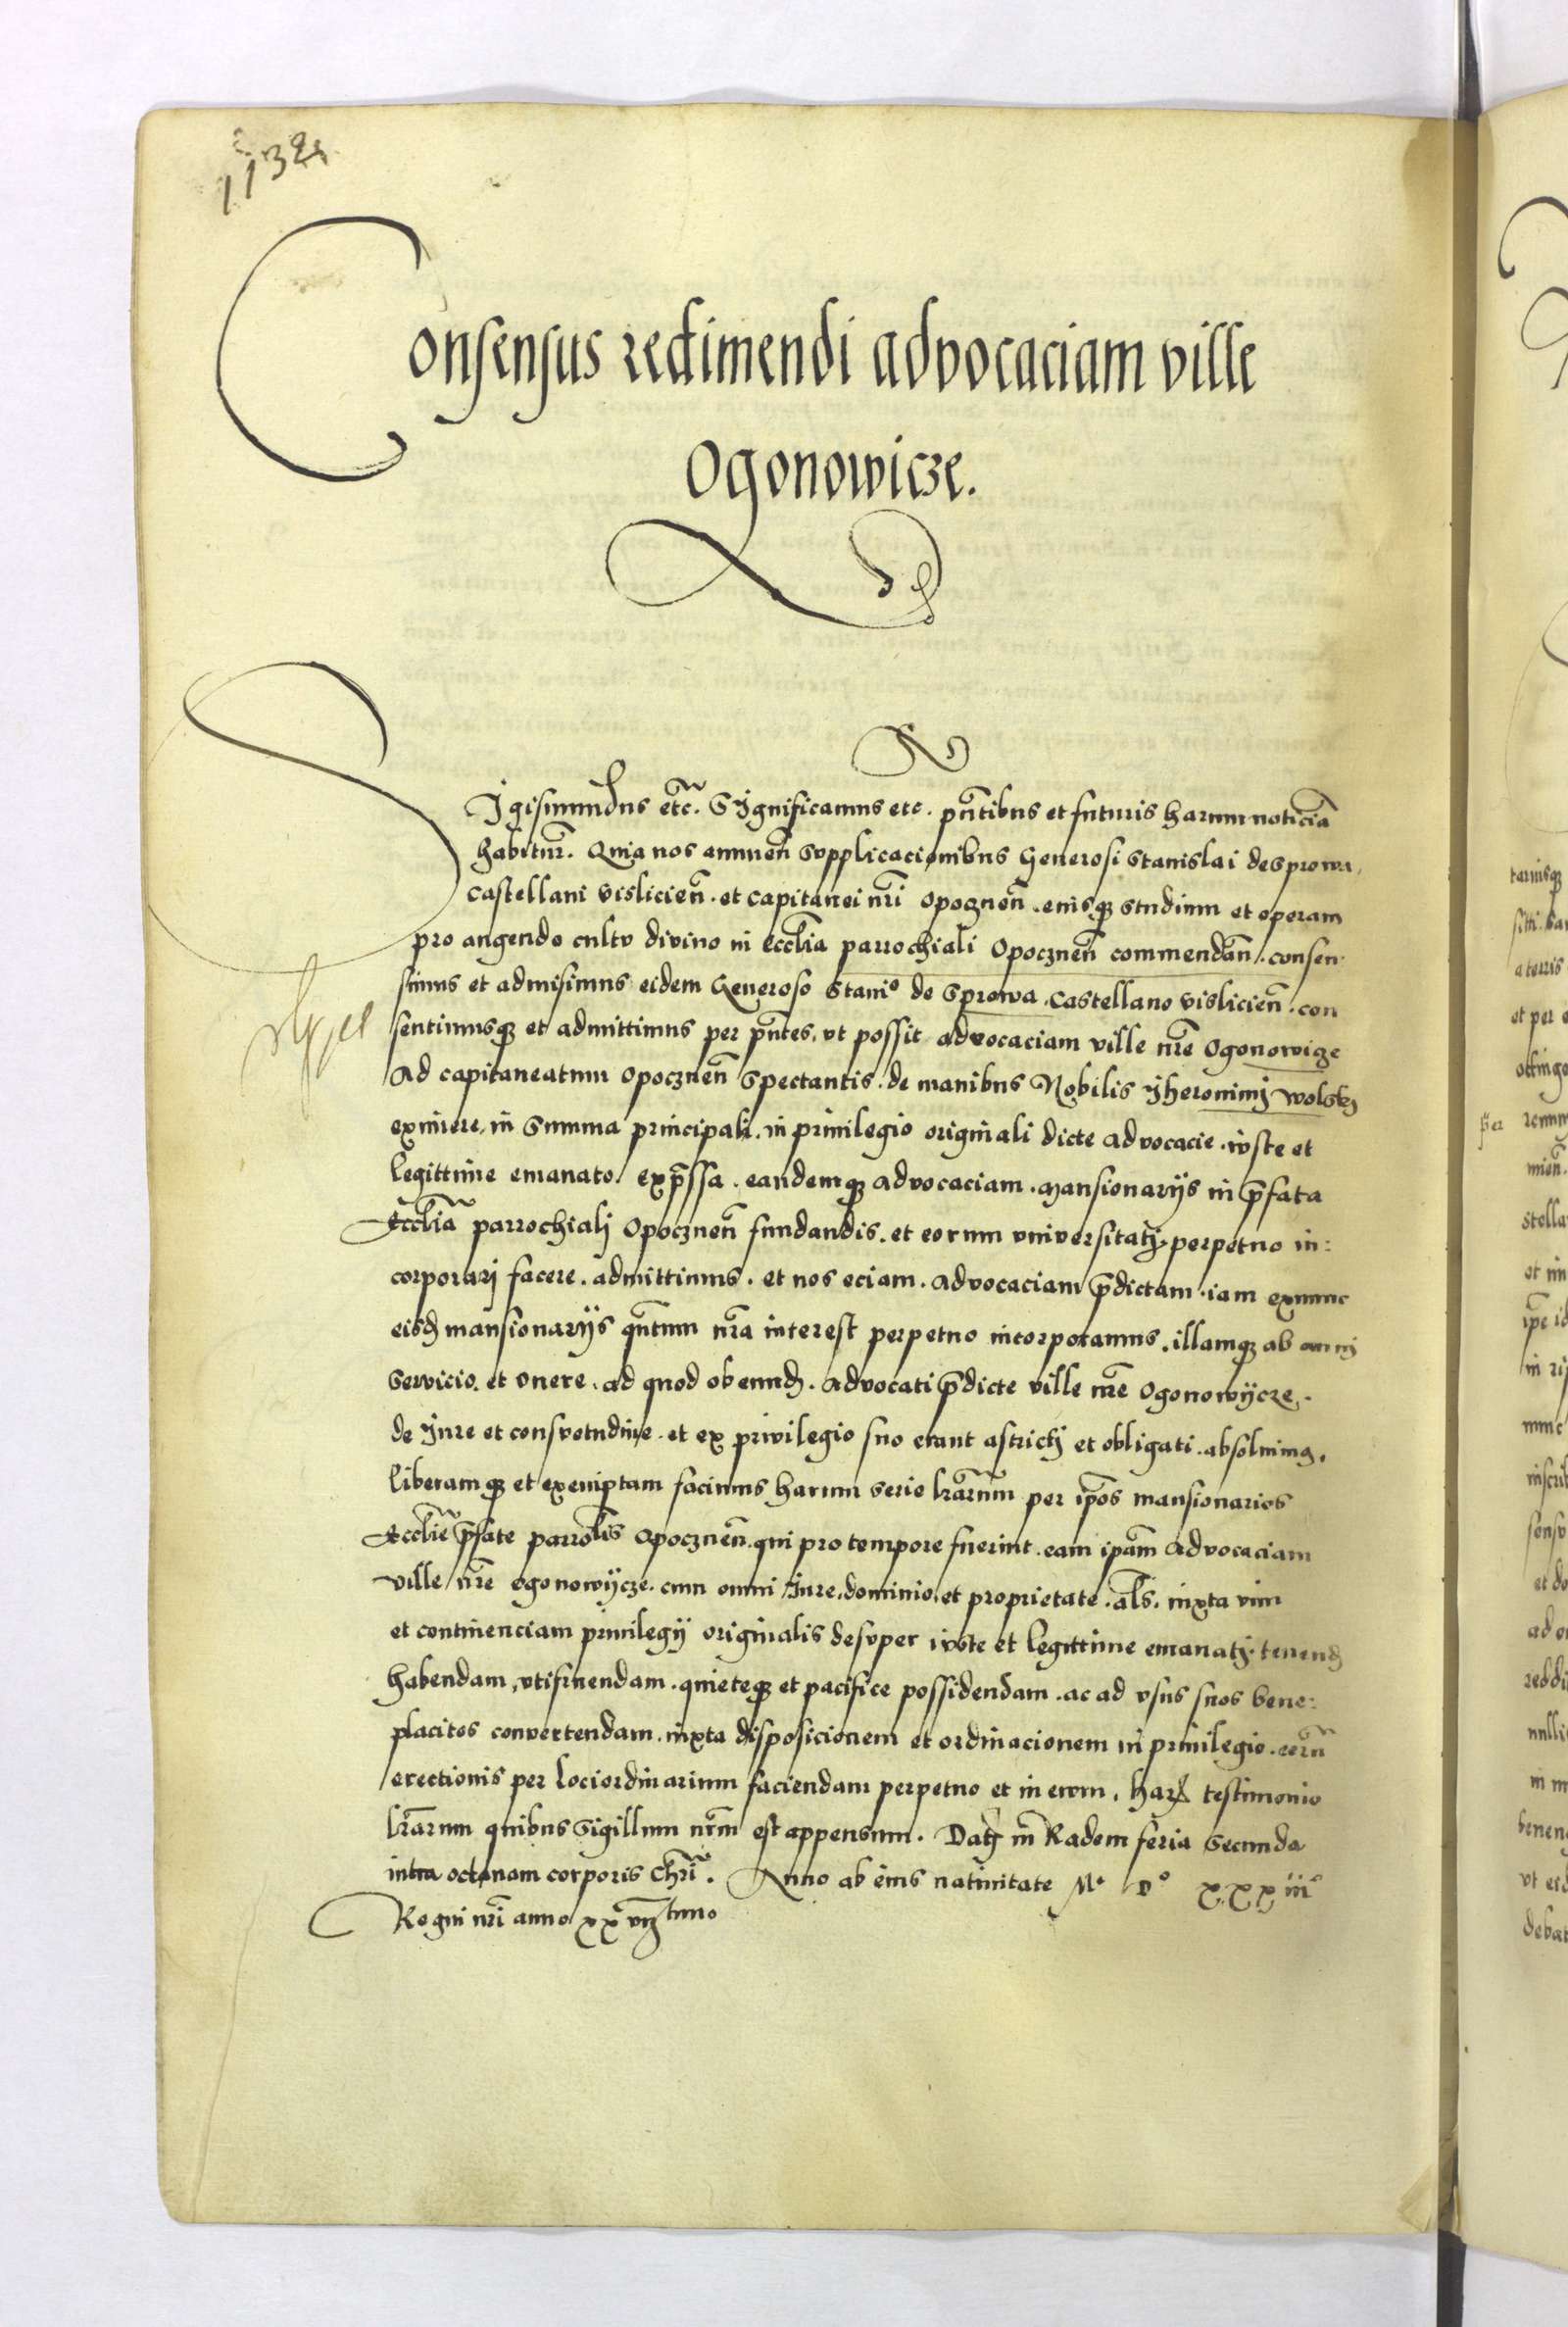 1132
Consensus redimendi advocaciam ville
Ogonowicze.
Sigismundus etc̃. Significamus etc. pñtibus et futuris harum noticiã
habitur̃. Quia nos annueñ supplicacionibus Generosi Stanislai de Sprowa,
Castellani Visliciẽn. et Capitanei nr̃i Opocznẽn. eiusq3 studium et operam
pro augendo cultu divino in eccl̃ia parrochiali Opocznẽn commendãn. consen
simus et admisimus eidem Generoso Stani° de Sprowa, Castellano Visliciẽn. con
sentimusq3 et admittimus per pñtes, ut possit advocaciam ville nr̃e Ogonowicze
ad capitaneatum Opocznẽn spectantis. de manibus Nobilis Jheronimj Wolskj
eximere, in summa principali. in privilegio originali dicte advocacie. iuste et
legittime emanato. exp̃ssa. eandemq3 advocaciam. mansionarijs in p̃fata
Eccl̃ia parrochialj Opocznẽn fundandis. et eorum universitatj. perpetuo in:
corporarj facere. admittimus. et nos eciam. advocaciam p̃dictam. iam exnunc
eisd mansionarijs qñtum nr̃a interest perpetuo incorporamus. illamq3 ab omnj
servicio. et onere. ad quod obeund. advocati p̃dicte ville nr̃e Ogonowycze.
de Jure et consuetudine. et ex privilegio suo erant astrictj et obligati. absolvimus.
liberamq3 et exemptam facimus harum serie lr̃arum per ip̃os mansionarios
Eccl̃ie p̃fate parrol̃is Opocznẽn. qui pro tempore fuerint. eam ipãm advocaciam
ville nr̃e Ogonowycze. cum omni Jure, dominio, et proprietate. al̃s. iuxta vim
et continenciam privilegij originalis desuper iuste et legittime emanatj. tenend
habendam, utifruendam. quieteq3 et pacifice possidendam. ac ad usus suos bene:
placitos convertendam. iuxta disposicionem et ordinacionem in privilegio. eorũ
erectionis per lociordinarium faciendam perpetuo et in evum. harꝝ testimonio
lr̃arum quibus sigillum nr̃m est appensum. Datum in Radom feria secunda
intra octavam corporis Chrĩ. Anno ab eius nativitate M° D° XXXIII°
Regni nr̃i anno xxviitimo